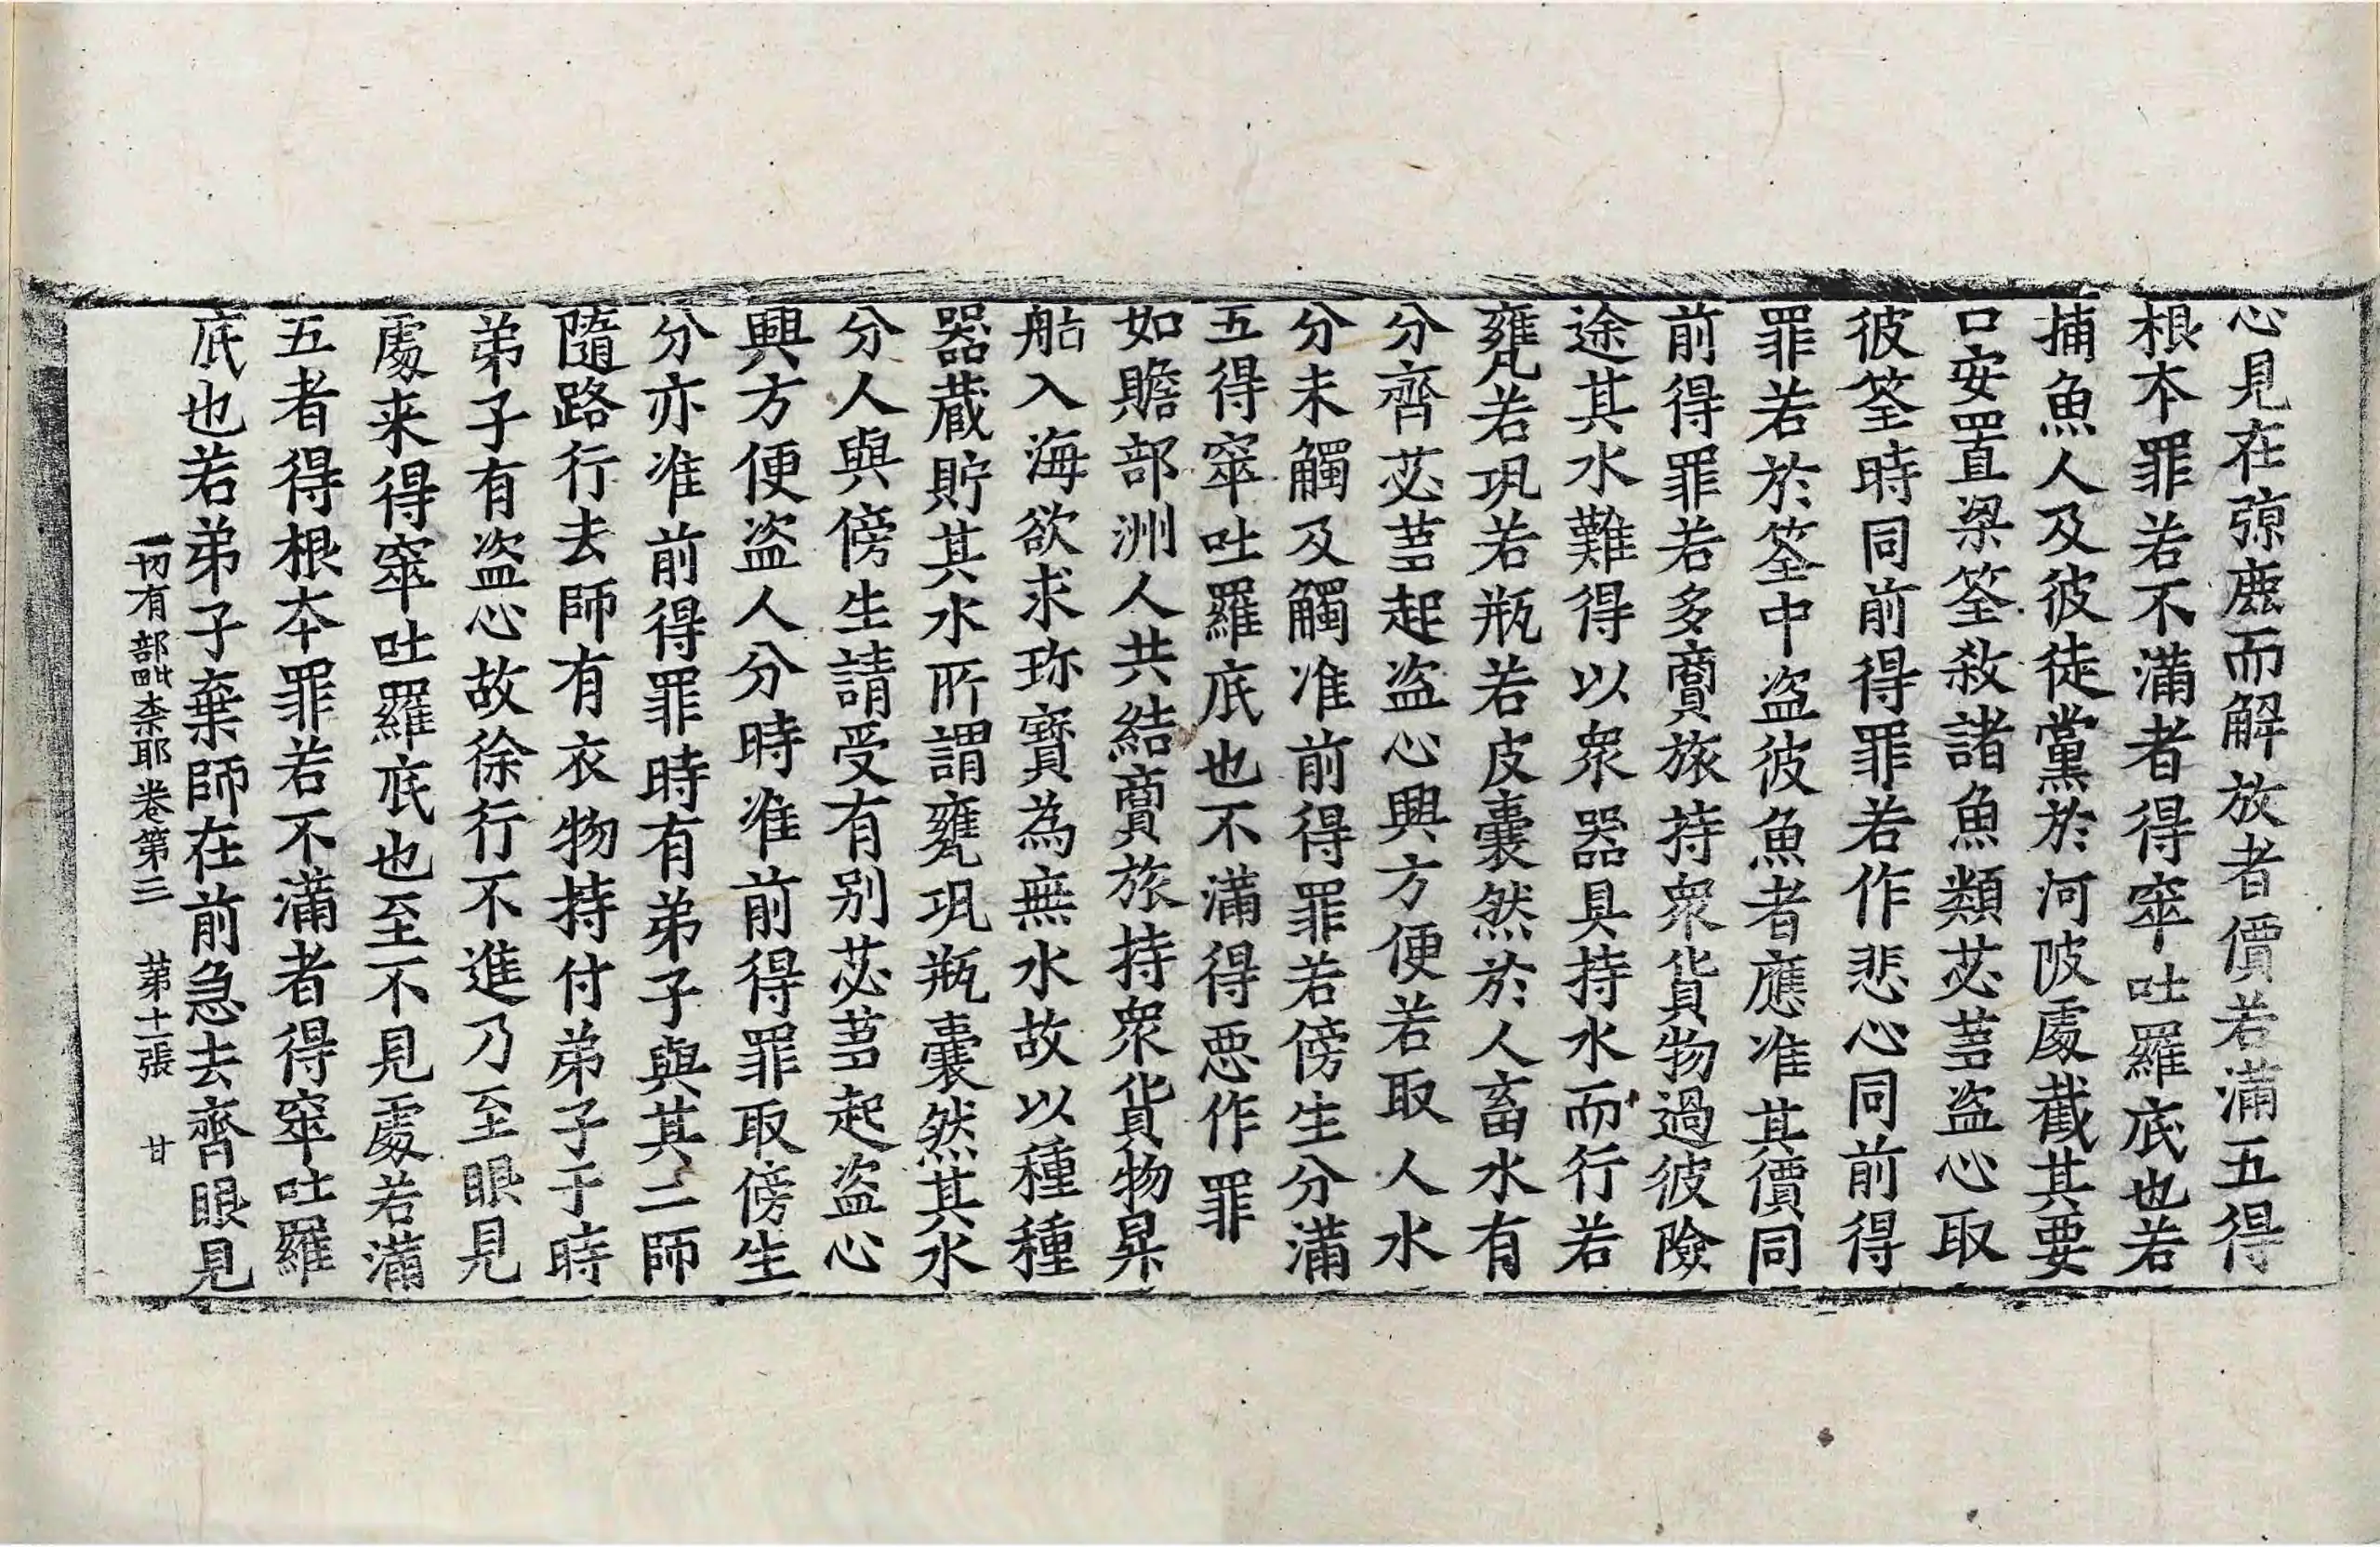 心見在弶鹿而解放者價若滿五得
根本罪若不滿者得窣吐羅底也若
捕魚人及彼徒黨於河陂處截其要
口安置梁筌敎諸魚類苾蒭盜心取
彼筌時同前得罪若作悲心同前得
罪若於筌中盜彼魚者應准其價同
前得罪若多賣旅持衆貨物過彼險
途其水難得以衆器具持水而行若
甕若瓨若瓶若皮囊然於人畜水有
分齊苾蒭起盜心興方便若取人水
分未觸及觸准前得罪若傍生分滿
五得窣吐羅底也不滿得惡作罪
如贍部洲人共結賣旅持衆貨物昇
舩入海欲求珎寶為無水故以種種
器蔵貯其水所謂甕瓨瓶囊然其水
分人與傍生請受有别苾蒭起盜心
興方便盜人分時准前得罪取傍生
分亦准前得罪時有弟子與其二師
隨路行去師有衣物持付弟子于時
弟子有盜心故徐行不進乃至眼見
處来得窣吐羅底也至不見處若滿
五者得根本罪若不滿者得窣吐羅
底也若弟子棄師在前急去齊眼見
一切有部毗柰耶卷第三　第十二張　甘